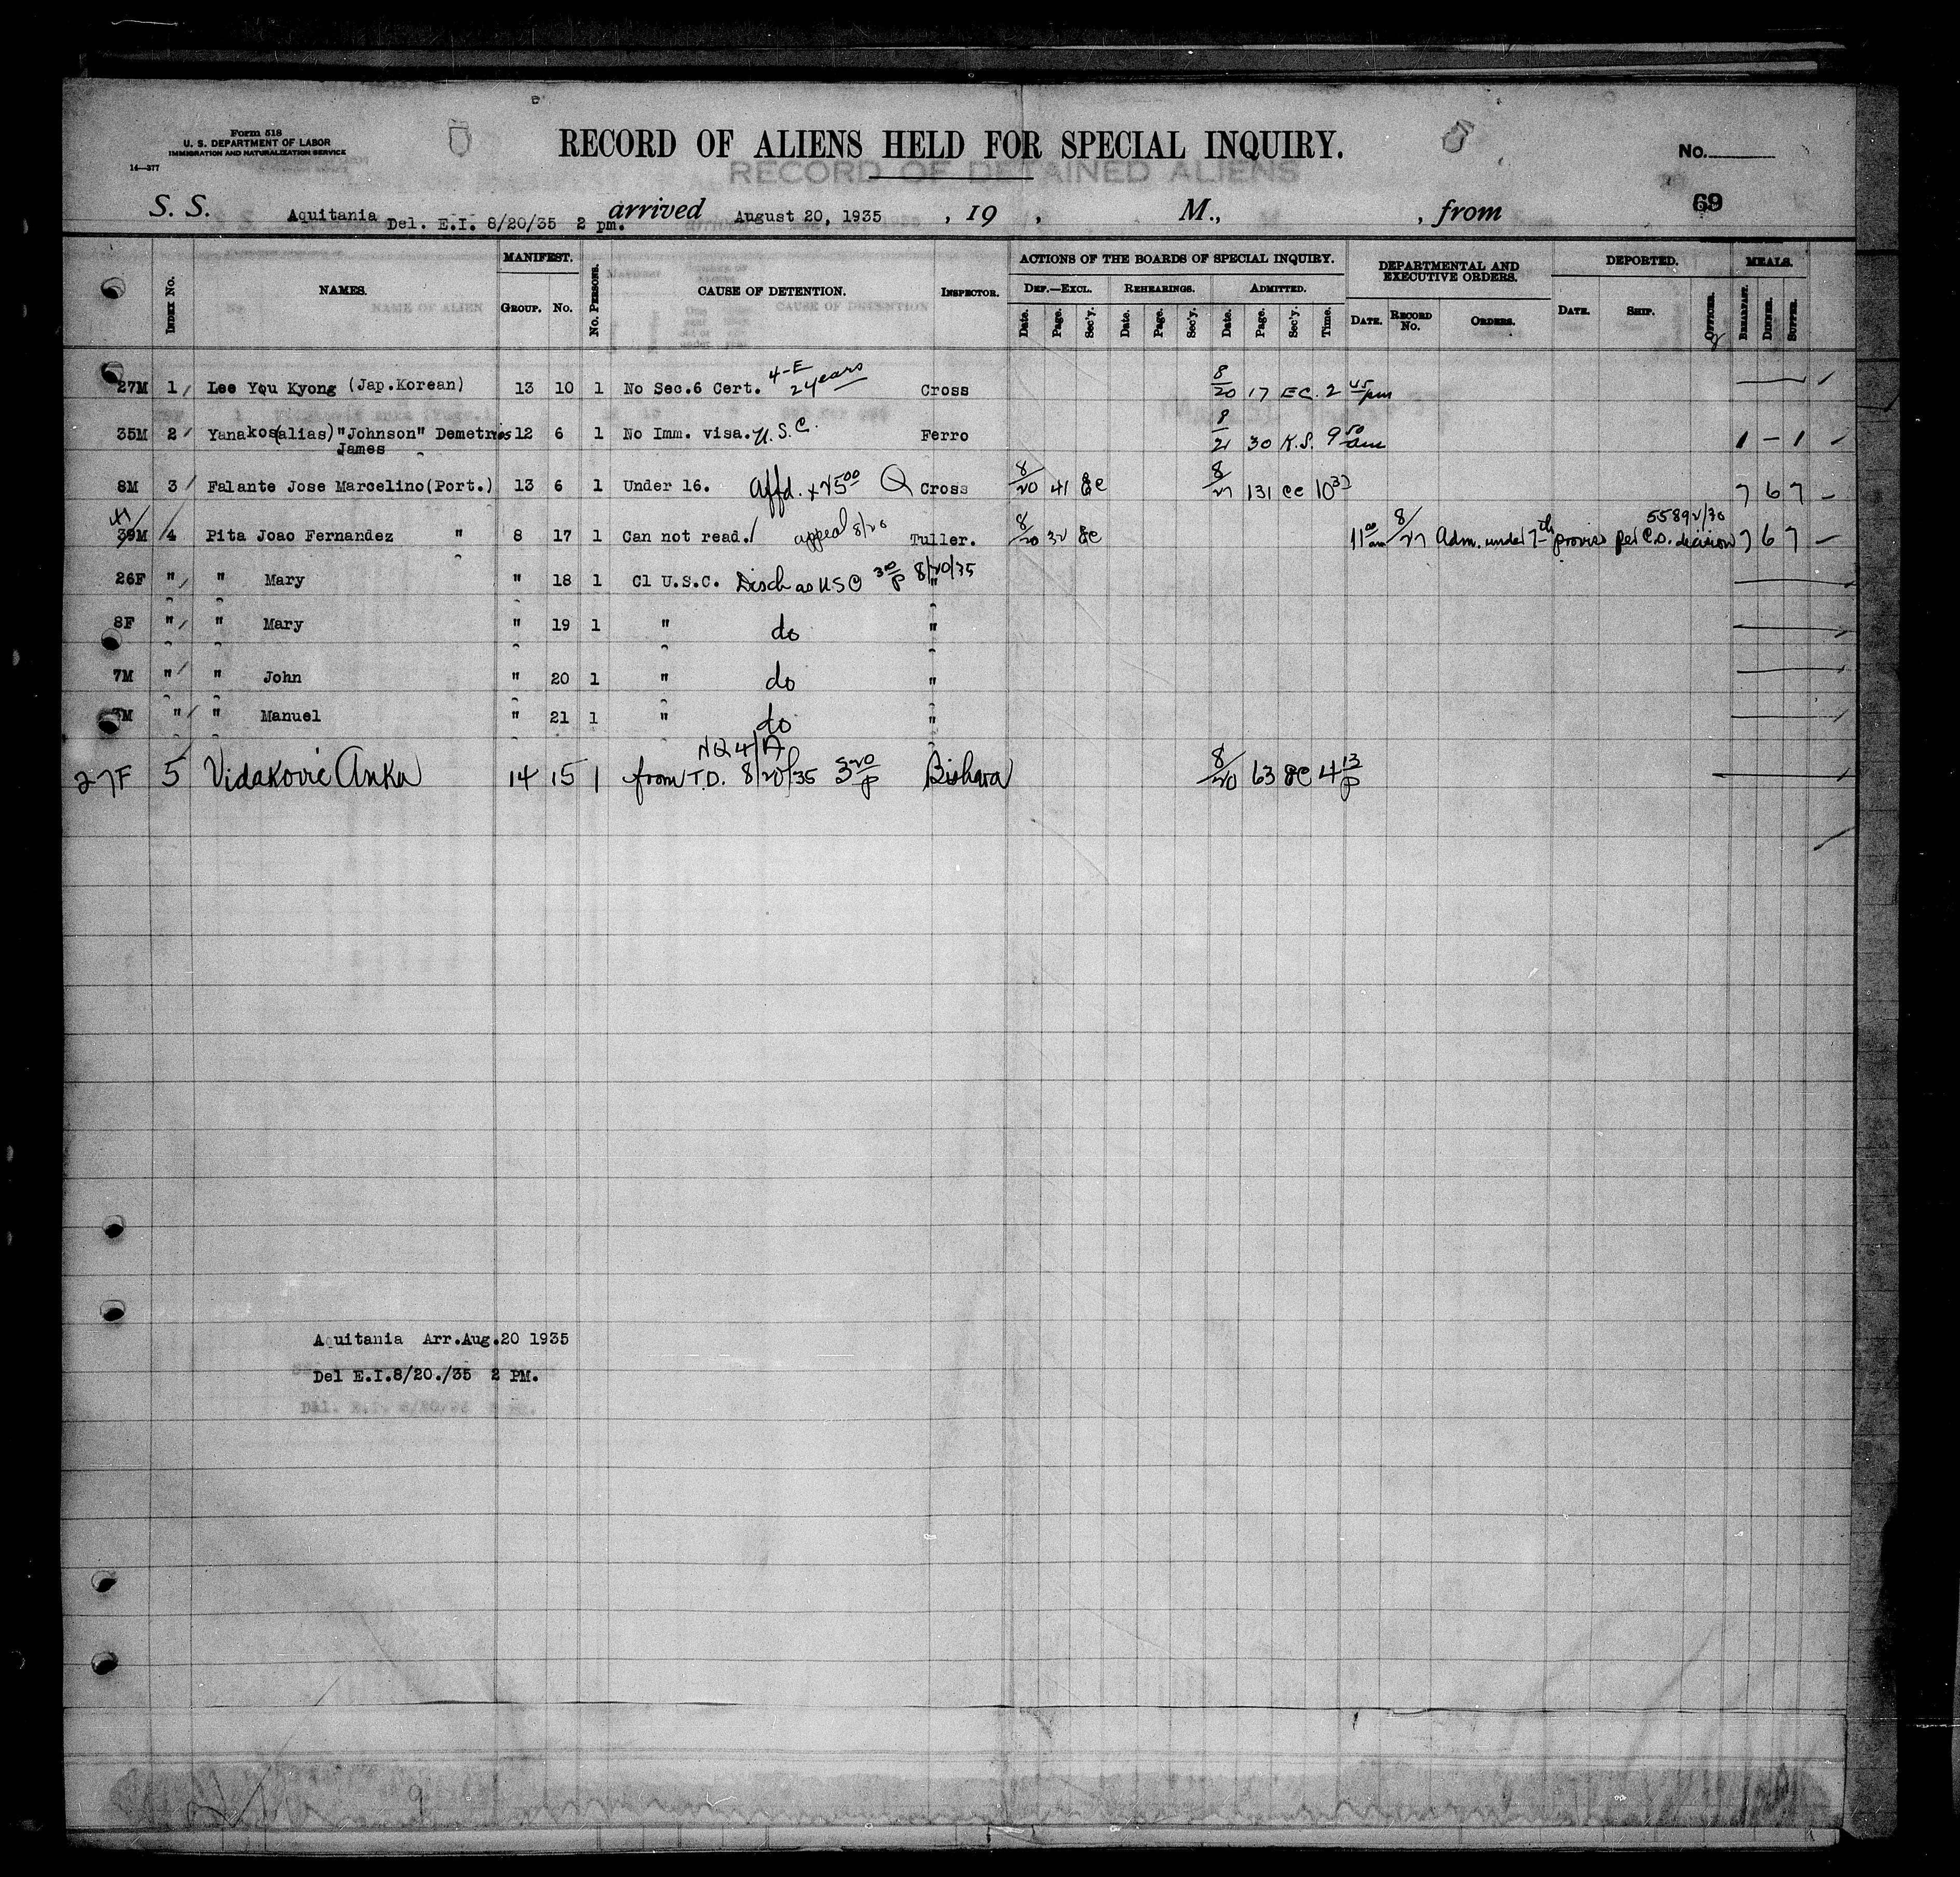 Form 518
U. S. DEPARTMENT OF LABOR
IMMIGRATION AND NATURALIZATION SERVICE
14—377
RECORD OF ALIENS HELD FOR SPECIAL INQUIRY.
RECORD OF DETAINED ALIENS
No.
69
S. S. Aquitania Del. E.I. 8/20/35 2 pm. arrived August 20, 1935 , 19 , M., , from
INDEX No. NAMES. MANIFEST. GROUP. No. No. PERSONS. CAUSE OF DETENTION. INSPECTOR. ACTIONS OF THE BOARDS OF SPECIAL INQUIRY. DEF.—EXCL. Date. Page. Sec'y. REHEARINGS. Date. Page. Sec'y. ADMITTED. Date. Page. Sec'y. Time. DEPARTMENTAL AND EXECUTIVE ORDERS. DATE. RECORD No. ORDERS. DEPORTED. DATE. SHIP. OFFICER. MEALS. BREAKFAST. DINNER. SUPPER.
27M 1 Lee You Kyong (Jap.Korean) 13 10 1 No Sec.6 Cert. 4-E 2 years Cross 8/20 17 EC. 2 45 pm
35M 2 Yanakos(alias)"Johnson" Demetrios 12 6 1 No Imm. visa. U.S.C. Ferro 8/21 30 K.S. 9 50 am 1 — 1
James
8M 3 Falante Jose Marcelino(Port.) 13 6 1 Under 16. Affd. + Q Cross 8/20 41 8/27 131 10 37 7 6 7
39M 4 Pita Joao Fernandez " 8 17 1 Can not read. appeal 8/20 Tuller. 8/20 32 11 00 am 8/27 Adm. under 7th proviso per C.O. decision 7 6 7
26F " " Mary " 18 1 Cl U.S.C. Disch as USC 3 00 p 8/20/35 "
8F " " Mary " 19 1 " do "
7M " " John " 20 1 " do "
" " Manuel " 21 1 " do "
27F 5 Vidakovic Anka 14 15 1 from T.D. 8/20/35 3 20 p Bishara 8/20 63 4 13 p
Aquitania Arr.Aug.20 1935
Del E.I.8/20./35 2 PM.